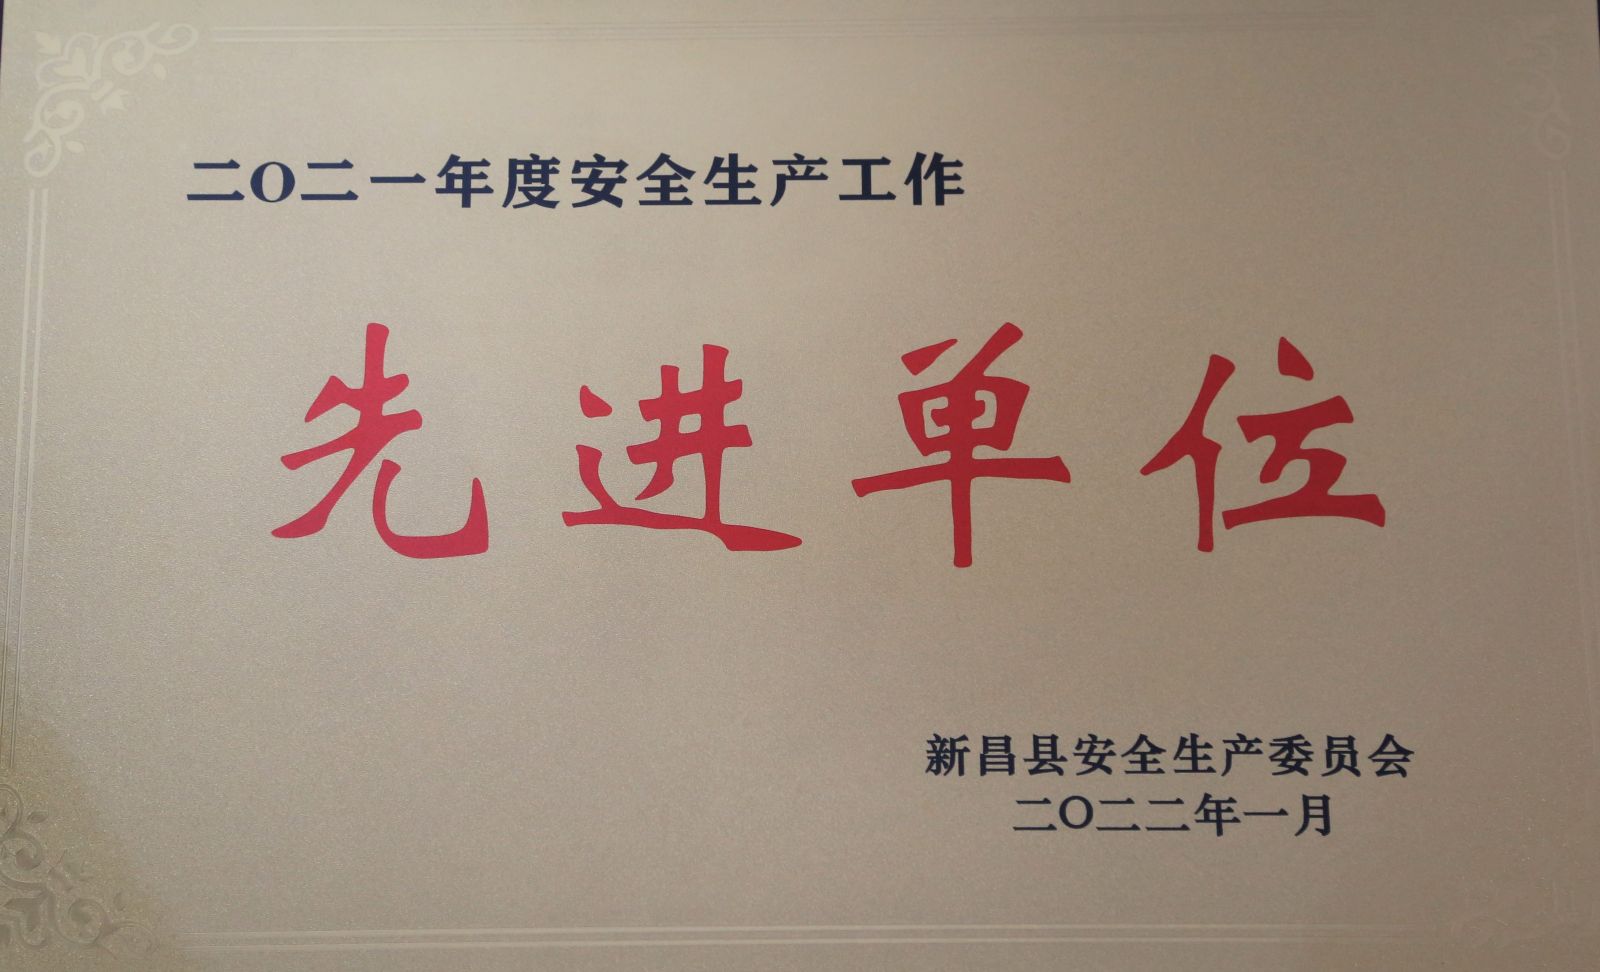 二O二一年度安全生产工作
先进单位
新昌县安全生产委员会
二O二二年一月